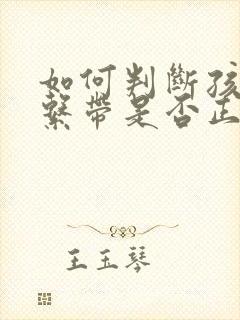 如何判斷孩
繫帶是否正
王玉琴